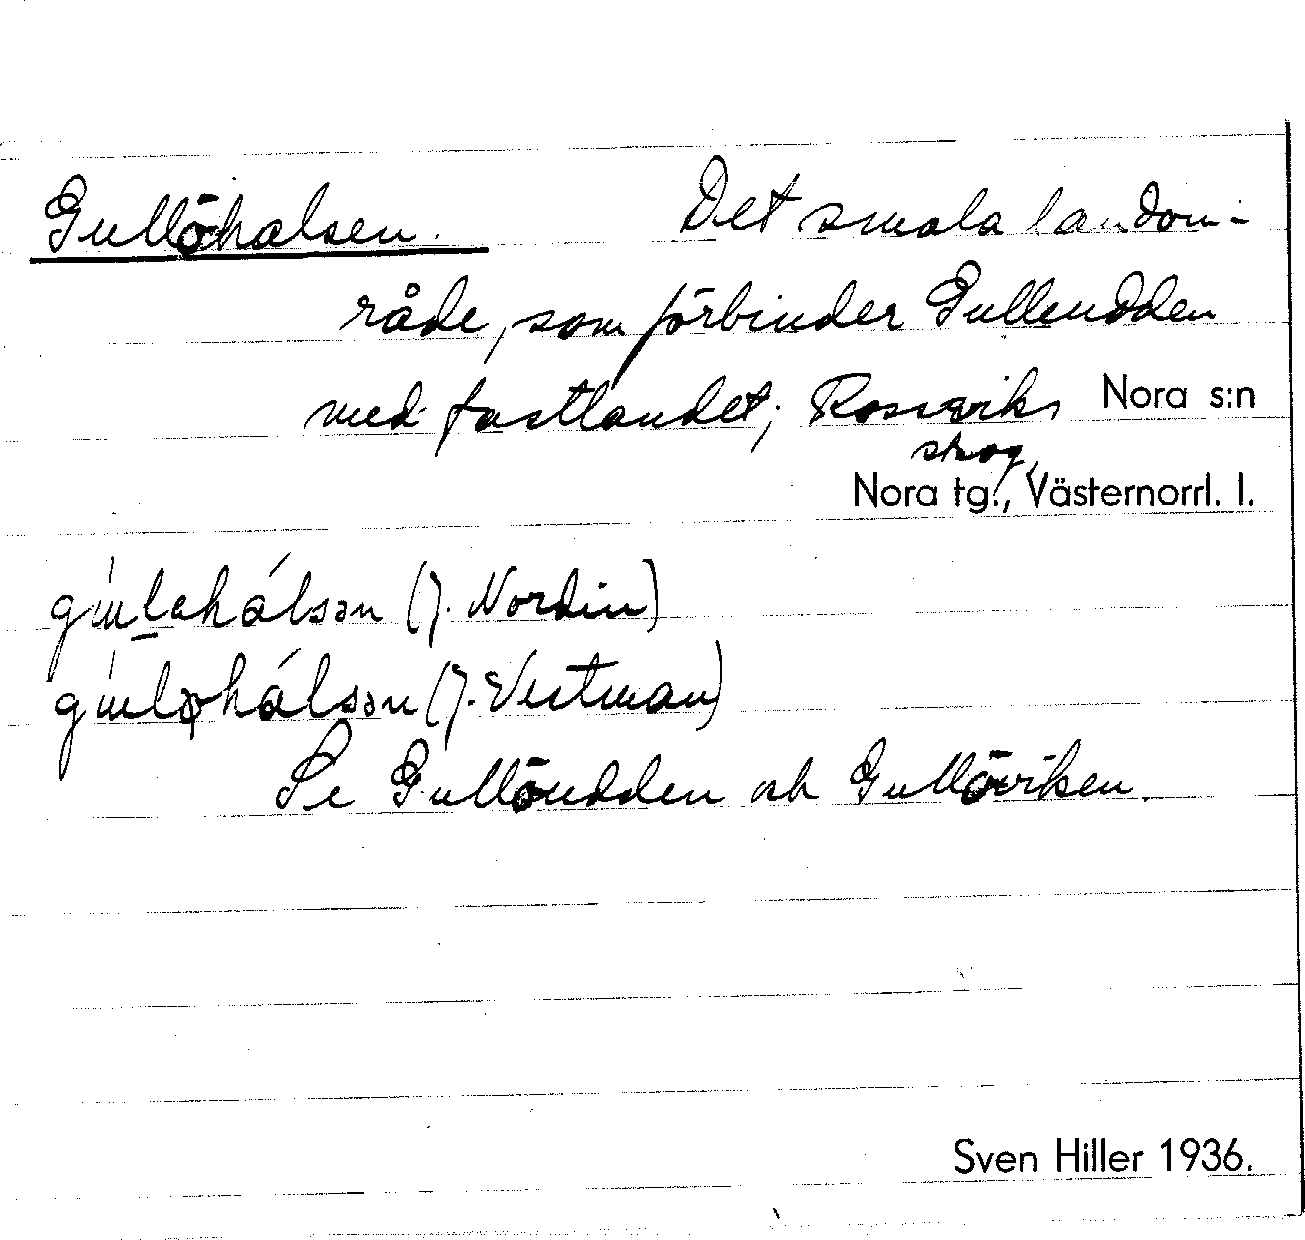 Gullöhalsen. Det smala landom-
råde, som förbinder Gulleudden
med fastlandet; Rossviks Nora s:n
skog,
Nora tg., Västernorrl. l.
(J. Nordin)
(J. Vestman)
Se Gullöudden och Gullöviken.
Sven Hiller 1936.